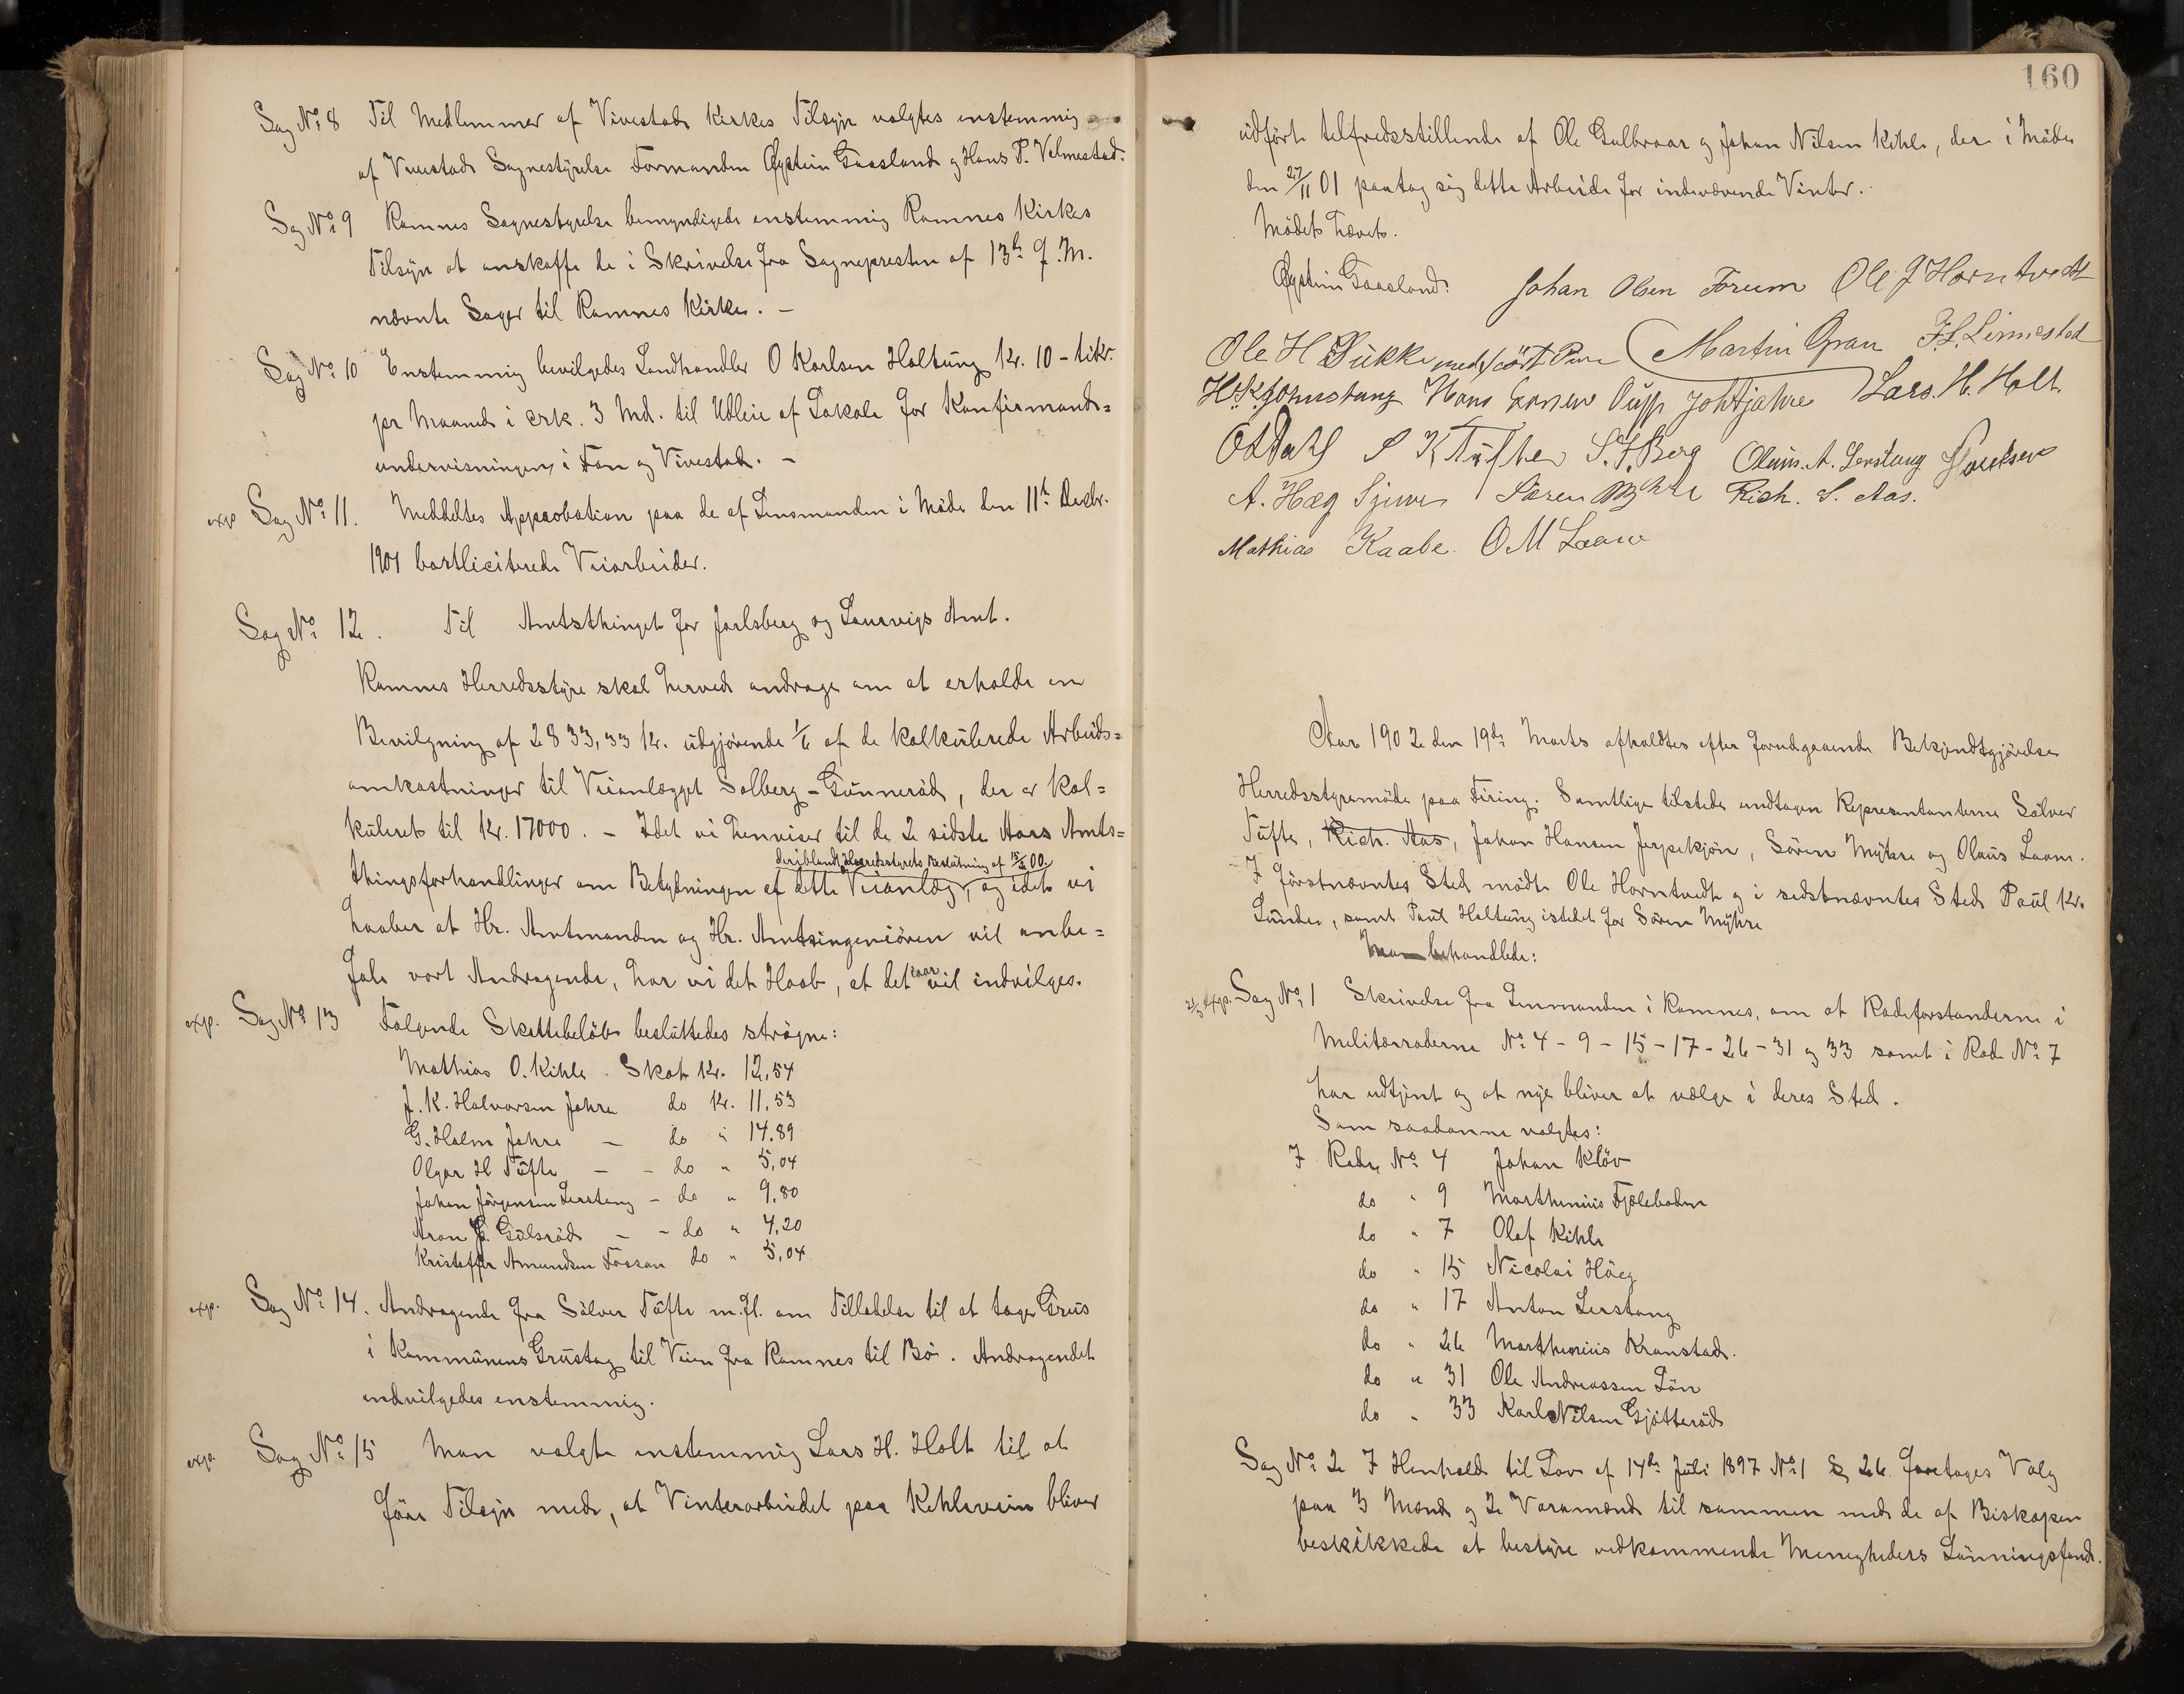 Sag No. 8 Til Medlemmer af Vivestads Kirkes Tilsyn valgtes enstemmig
af Vivestads Sognestyrelse Formanden Øystein Gaasland og Hans P. Velmestad.
Sag No. 9 Ramnes Sognestyrelse bemyndigede enstemmig Ramnes Kirkes
Tilsyn at anskaffe de i Skrivelse fra Sognepresten af 13de f. M.
nævnte Sager til Ramnes Kirke. –
Sag No. 10 Enstemmig bevilgedes Landhandler O Karlsen Haltung Kr. 10 – ti Kr.
pr Maaned i crk. 3 Md. til Udleie af Lokale for Konfirmands=
undervisningen i Fon og Vivestad. –
exp Sag No. 11. Meddeltes Approbation paa de af Lensmanden i Møde den 11te Decbr.
1901 bortliciterede Veiarbeider.
Sag No. 12. Til Amtsthinget for Jarlsberg og Laurvigs Amt.
Ramnes Herredsstyre skal herved andrage om at erholde en
Bevilgning af 2833,33 Kr. udgjørende 1/6 af de kalkulerede Arbeids=
omkostninger til Veianlægget Solberg – Gunnerød, der er kal=
kuleret til Kr. 17000. – Idet vi henviser til de 2 sidste Aars Amts=
deriblandt Herredsstyrets Beslutning af 15/2 00.
thingsforhandlinger om Betydningen af dette Veianlæg, og idet vi
haaber at Hr. Amtmanden og Hr. Amtsingeniøren vil anbe=
fale vort Andragende, har vi det Haab, at det iaar vil indvilges.
exp. Sag No. 13 Følgende Skattebeløb besluttedes strøgne:
Mathias O. Kihle. Skat Kr. 12,54
J. K. Halvorsen Jahre do Kr. 11.53
G. Holm Jahre – do " 14.89
Olgar H Tufte – – do " 5,04
Johan Jørgensen Lerstang – do " 9,80
Aron G. Gulsrød – – do " 4,20
Kristoffer Amundsen Fossan do " 5,04
exp. Sag No. 14. Andragende fra Sølver Tufte m. fl. om Tilladelse til at tage Grus
i Kommunens Grustag til Veien fra Ramnes til Bø. Andragendet
indvilgedes enstemmig.
exp. Sag No. 15 Man valgte enstemmig Lars H. Holt til at
føre Tilsyn med, at Vinterarbeidet paa Kihleveien bliver
160
udført tilfredsstillende af Ole Gulbraar og Johan Nilsen Kihle, der i Møde
den 27/11 01 paatog sig dette Arbeide for indeværende Vinter.
Mødet hævet.
Øystein Gaasland. Johan Olsen Forum Ole J Horntvedt
Ole H Sukke med ført Pen Martin Gran F. L. Linnestad
Hans Larsen Jahre Lars. H. Holt.
O A Dahl S K Tufte S. J. Berg Olaus. A. Lerstang
A. Hæg Søren Myhre Rich. S. Aas.
Mathias Kaabe. O M Laane
Aar 1902 den 19de Marts afholdtes efter forudgaaende Bekjendtgjørelse
Herredsstyremøde paa Firing. Samtlige tilstede undtagen Repræsentanterne Sølver
Tufte, Rich. Aas, Johan Hansen Jerpekjøn, Søren Myhre og Olaus Laane.
I førstnævntes Sted mødte Ole Horntvedt og i sidstnævntes Sted Paul Kr.
Linde, samt Paul Haltung istedet for Søren Myhre
Man behandlede:
21/3 Exp. Sag No. 1 Skrivelse fra Lensmanden i Ramnes, om at Rodeforstanderne i
Militærroderne No. 4 – 9 – 15 – 17 – 26 – 31 og 33 samt i Rode No. 7
har udtjent og at nye bliver at vælge i deres Sted.
Som saadanne valgtes:
I Rode No. 4 Johan Kløv
do " 9 Marthinius Fjælebaden
do " 7 Olaf Kihle
do " 15 Nicolai Høeg
do " 17 Anton Lerstang
do " 26 Marthinius Kranstad.
do " 31 Ole Andreassen Løn
do " 33 Karl Nilsen Gjøtterød
Sag No. 2 I Henhold til Lov af 14de Juli 1897 No. 1 § 26 foretages Valg
paa 3 Mænd og 2 Varamænd til sammen med de af Biskopen
beskikkede at bestyre vedkommende Menigheders Lønningsfond.